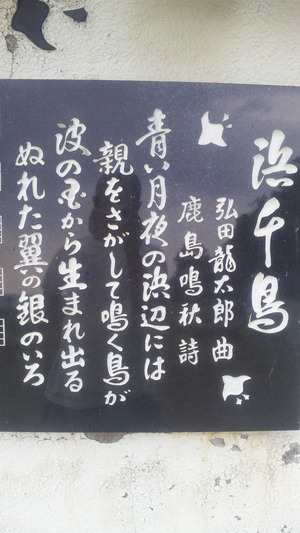 浜千鳥
弘田龍太郎 曲
鹿島鳴秋 詩
青い月夜の浜辺には
親をさがして鳴く鳥が
波の国から生まれ出る
ぬれた翼の銀のいろ